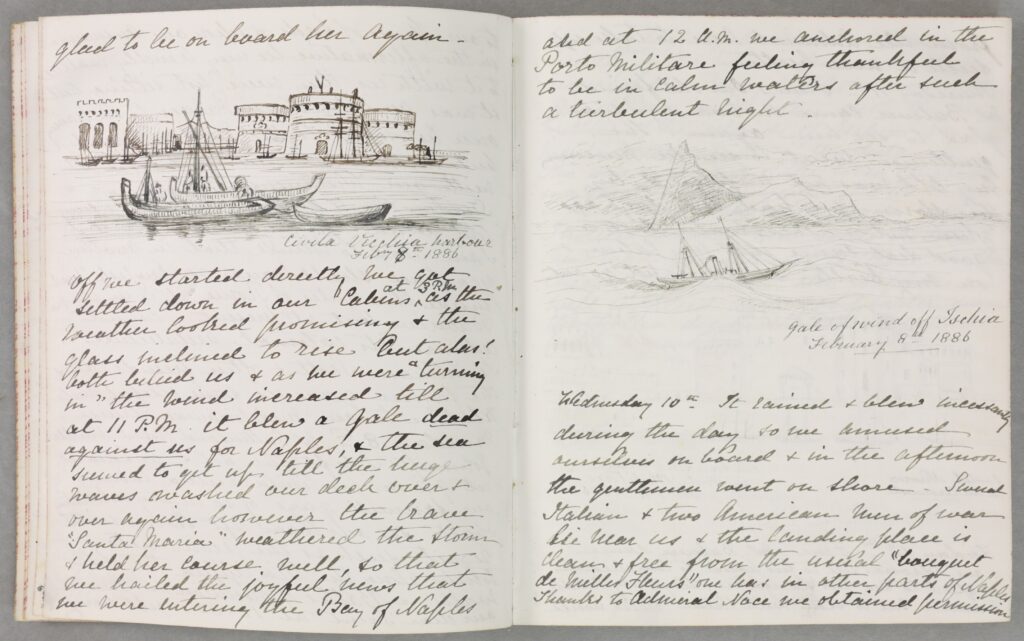 glad to be on board her again -
Civita Vecchia harbour
Feby 8th 1886
Off we started directly we got
settled down in our Cabins, at 3 P.M. as the
weather looked promising & the
glass inclined to rise but alas!
both belied us & as we were "turning
in" the wind increased till
at 11 P.M. it blew a gale dead
against us for Naples, & the sea
seemed to get up till the huge
waves swashed our deck over &
over again however the brave
"Santa Maria" weathered the storm
& held her course well, so that
we hailed the joyful news that
we were entering the Bay of Naples
and at 12 A.M. we anchored in the
Porto Militare feeling thankful
to be in calm waters after such
a turbulent night.
Gale of wind off Ischia
February 8th 1886
Wednesday 10th It rained & blew incessantly
during the day so we amused
ourselves on board & in the afternoon
the gentlemen went on shore - Several
Italian & two American men of war
lie near us & the landing place is
clean & free from the usual "bouquet
de Milles Fleurs" one has in other parts of Naples
Thanks to Admiral Noce we obtained permission